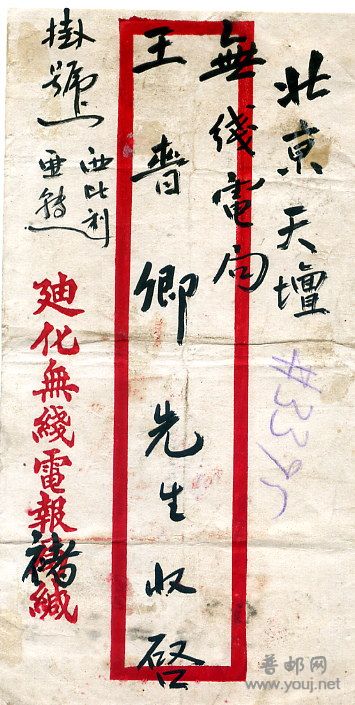 北京天壇
無綫電局
王晉卿先生收啟
掛號
西比利
亜轉
廸化無綫電報褚緘
普邮网
www.youj.net